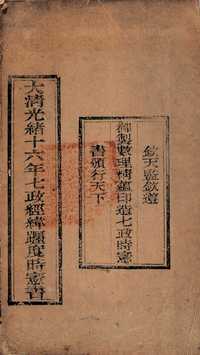 欽天監欽遵
御製數理精蘊印造七政時憲
書頒行天下
大清光緒十六年七政經緯躔度時憲書